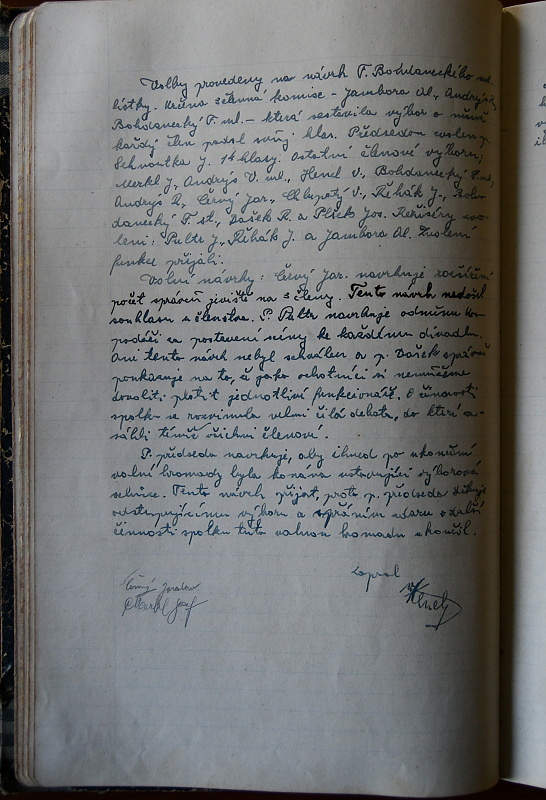 Volby provedeny na návrh F. Bohdaneckého ml.
lístky. Určena komise - Jambora Al., Andrýs R.,
Bohdanecký F. ml. - která sestavila výbor o němž
každý člen podal svůj hlas. Předsedou zvolen p.
Schnoutka J. 14 hlasy. Ostatní členové výboru;
Merkl J., Andrýs V. ml., Henel V., Bohdanecký F. ml.,
Andrýs R., Černý Jar., Chlupatý V., Řehák J., Boh-
danecký F. st., Dašek R. a Plšek Jos. Režiséry zvo-
leni: Pultr J., Řehák J. a Jambora Al. Zvolení
funkce přijali.
Volní návrhy: Černý Jar. navrhuje rozšíření
počet správců jeviště na 3 členy. Tento návrh nedošel
souhlasu u členstva. P. Pultr navrhuje odměnu hos-
podáři za postavení scény ke každému divadlu.
Ani tento návrh nebyl schválen a p. Dašek správně
poukazuje na to, že jako ochotníci si nemůžeme
dovoliti platit jednotlivé funkcionáře. O činnosti
spolku se rozvinula velmi čilá debata, do které za-
sáhli téměř všichni členové.
P. předseda navrhuje, aby ihned po ukončení
valné hromady byla konána ustavující výborová
schůze. Tento návrh přijat, proto p. předseda děkuje
odstupujícímu výboru a s přáním zdaru v další
činnosti spolku tuto valnou hromadu ukončil.
Zapsal
Černý Jaroslav
Merkl Josef